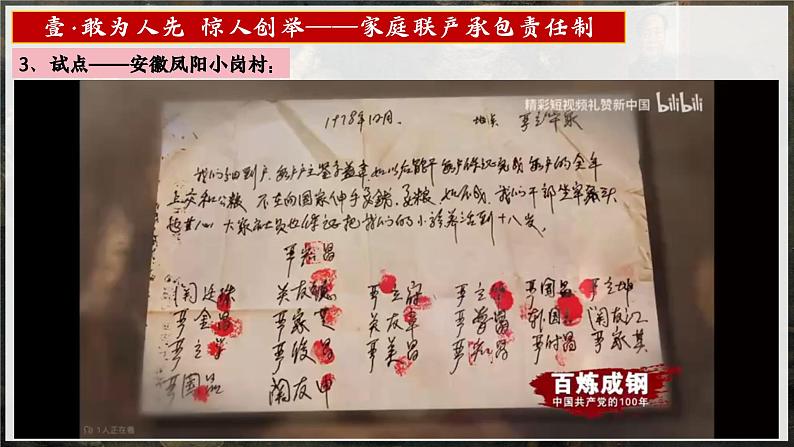 壹·敢为人先 惊人创举——家庭联产承包责任制
3、试点——安徽凤阳小岗村：
精彩短视频礼赞新中国 bilibili
1978年12月. 地点 严立华家
我们分田到户,每户户主签字盖章,如以后能干每户保证完成每户的全年
上交和公粮 不在向国家伸手要钱要粮 如不成,我们干部坐牢杀头
也甘心 大家社员也保证把我们的小孩养活到十八岁.
严宏昌
关友
严立 严立华 严国昌 严立坤
严金昌 严家芝 关友章 严学昌 韩国 关友江
严立学 严俊昌 严美昌 严付昌 严家其
严国品 关友申
百炼成钢
中国共产党的100年
1人正在看